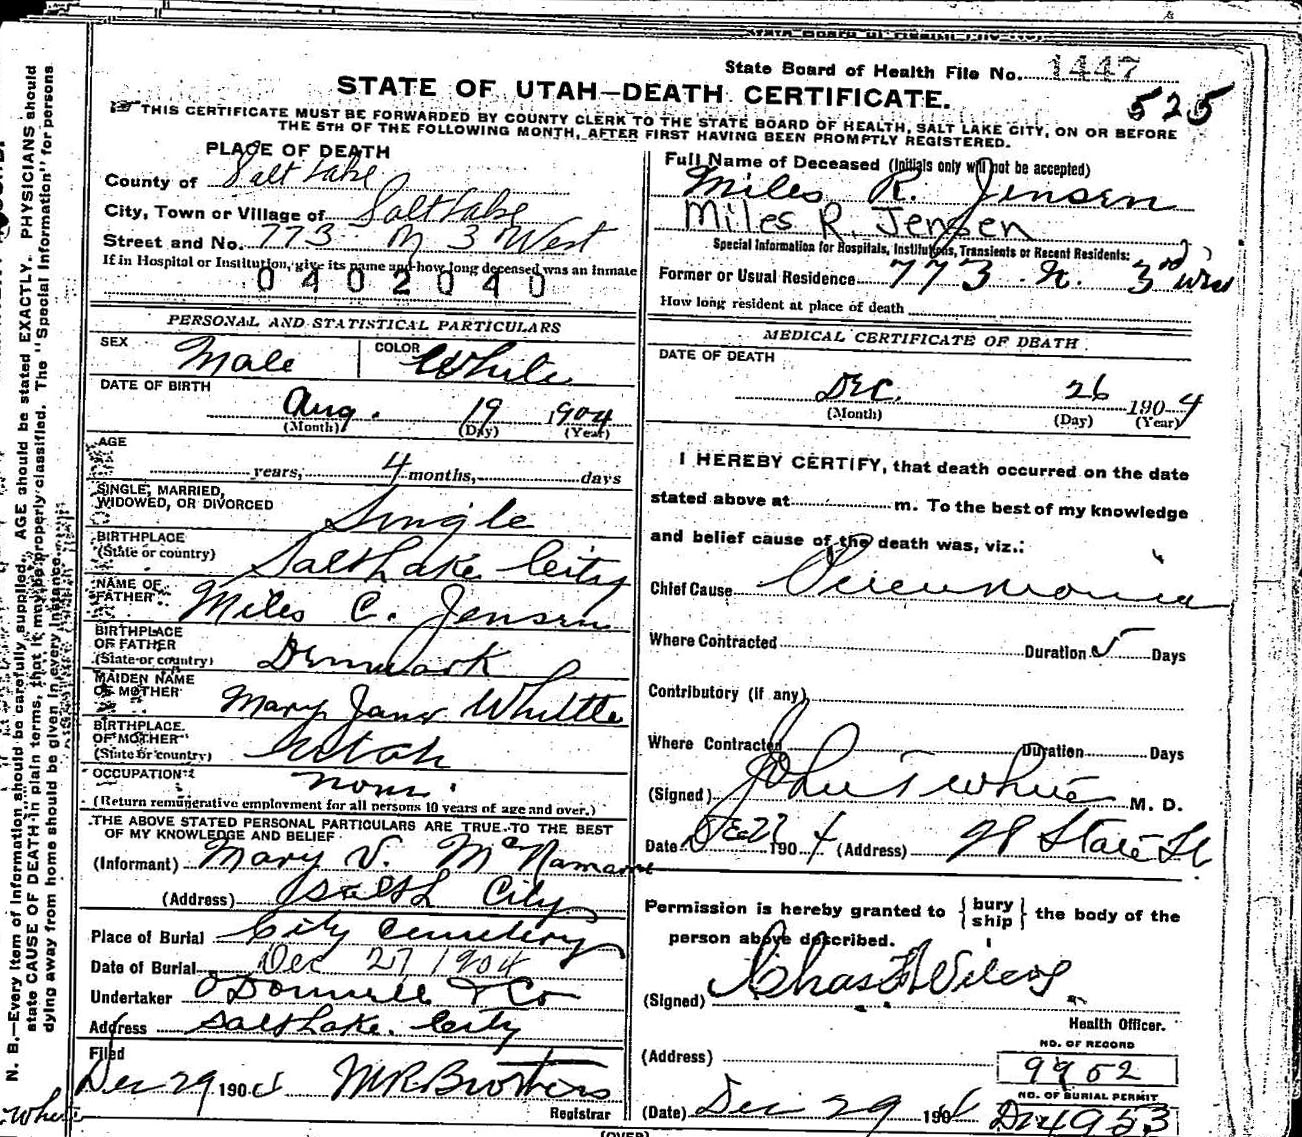 State Board of Health File No. 1447
525
STATE OF UTAH—DEATH CERTIFICATE.
THIS CERTIFICATE MUST BE FORWARDED BY COUNTY CLERK TO THE STATE BOARD OF HEALTH, SALT LAKE CITY, ON OR BEFORE
THE 5TH OF THE FOLLOWING MONTH, AFTER FIRST HAVING BEEN PROMPTLY REGISTERED.
PLACE OF DEATH
County of Salt Lake
City, Town or Village of Salt Lake
Street and No. 773 N 3 West
If in Hospital or Institution, give its name and how long deceased was an inmate
0402040
PERSONAL AND STATISTICAL PARTICULARS
SEX Male COLOR White
DATE OF BIRTH
Aug. 19 1904
(Month) (Day) (Year)
AGE
years, 4 months, days
SINGLE, MARRIED,
WIDOWED, OR DIVORCED Single
BIRTHPLACE
(State or country) Salt Lake City
NAME OF
FATHER Miles C. Jensen
BIRTHPLACE
OF FATHER
(State or country) Denmark
MAIDEN NAME
OF MOTHER Mary Jane Whittle
BIRTHPLACE
OF MOTHER
(State or country) Utah
OCCUPATION none
(Return remunerative employment for all persons 10 years of age and over.)
THE ABOVE STATED PERSONAL PARTICULARS ARE TRUE TO THE BEST
OF MY KNOWLEDGE AND BELIEF
(Informant) Mary V. McNamara
(Address) Salt L City
Place of Burial City Cemetery
Date of Burial Dec 27 1904
Undertaker O'Donnell & Co
Address Salt Lake City
Filed
Dec 29 1904
Registrar
Full Name of Deceased (Initials only will not be accepted)
Miles R. Jensen
Miles R. Jensen
Special Information for Hospitals, Institutions, Transients or Recent Residents:
Former or Usual Residence 773 N. 3rd West
How long resident at place of death
MEDICAL CERTIFICATE OF DEATH
DATE OF DEATH
Dec. 26 1904
(Month) (Day) (Year)
I HEREBY CERTIFY, that death occurred on the date
stated above at m. To the best of my knowledge
and belief cause of the death was, viz.:
Chief Cause Pneumonia
Where Contracted Duration 5 Days
Contributory (if any)
Where Contracted Duration Days
(Signed) John T White M. D.
Date Dec 27 1904 (Address) State St
Permission is hereby granted to {bury ship} the body of the
person above described.
(Signed) Chas F Wilcox
Health Officer.
(Address)
NO. OF RECORD
9952
NO. OF BURIAL PERMIT
(Date) Dec 29 1904 D 4953
N. B.—Every item of information should be carefully supplied. AGE should be stated EXACTLY. PHYSICIANS should
state CAUSE OF DEATH in plain terms, that it may be properly classified. The "Special Information" for persons
dying away from home should be given in every instance.
(OVER)